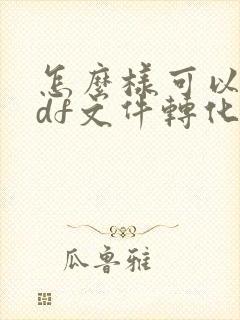 怎麼樣可以
df文件轉化
瓜魯雅